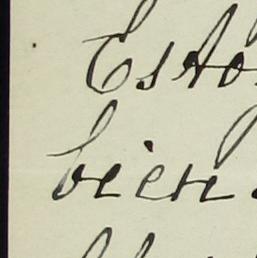 Esto
bien